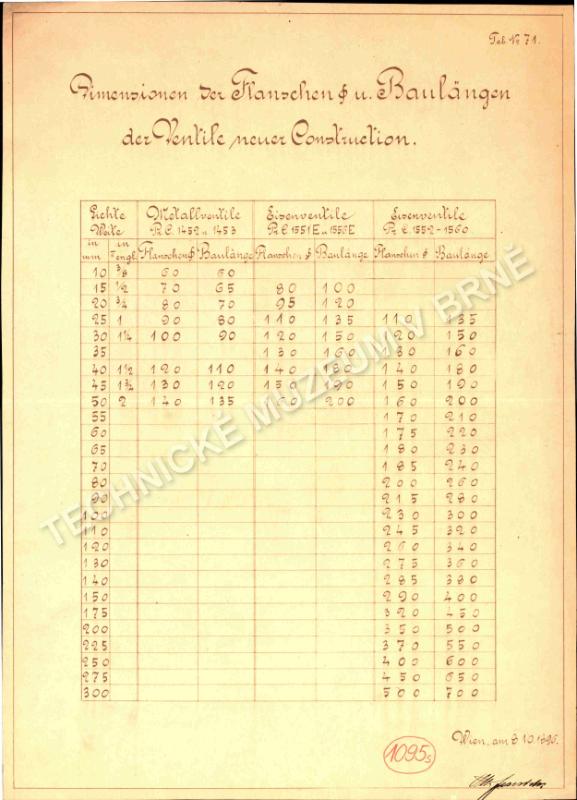 Tab. Nr 71.
Dimensionen der Flanschen ϕ u. Baulängen
der Ventile neuer Construction.
Lichte Weite Metallventile Eisenventile Eisenventile
Pr. C. 1452 u 1453 Pr. C. 1551E u. 1556E Pr. C. 1552-1560
in mm in engl. Flanschen ϕ Baulänge Flanschen ϕ Baulänge Flanschen ϕ Baulänge
10 3/8 60 60
15 1/2 70 65 80 100
20 3/4 80 70 95 120
25 1 90 80 110 135 110 135
30 1 1/4 100 90 120 150 120 150
35 130 160 130 160
40 1 1/2 120 110 140 180 140 180
45 1 3/4 130 120 150 190 150 190
50 2 140 135 160 200 160 200
55 170 210
60 175 220
65 180 230
70 185 240
80 200 260
90 215 280
100 230 300
110 245 320
120 260 340
130 275 360
140 285 380
150 290 400
175 320 450
200 350 500
225 370 550
250 400 600
275 450 650
300 500 700
Wien, am 8 10. 1895.
1095s
TECHNICKÉ MUZEUM V BRNĚ